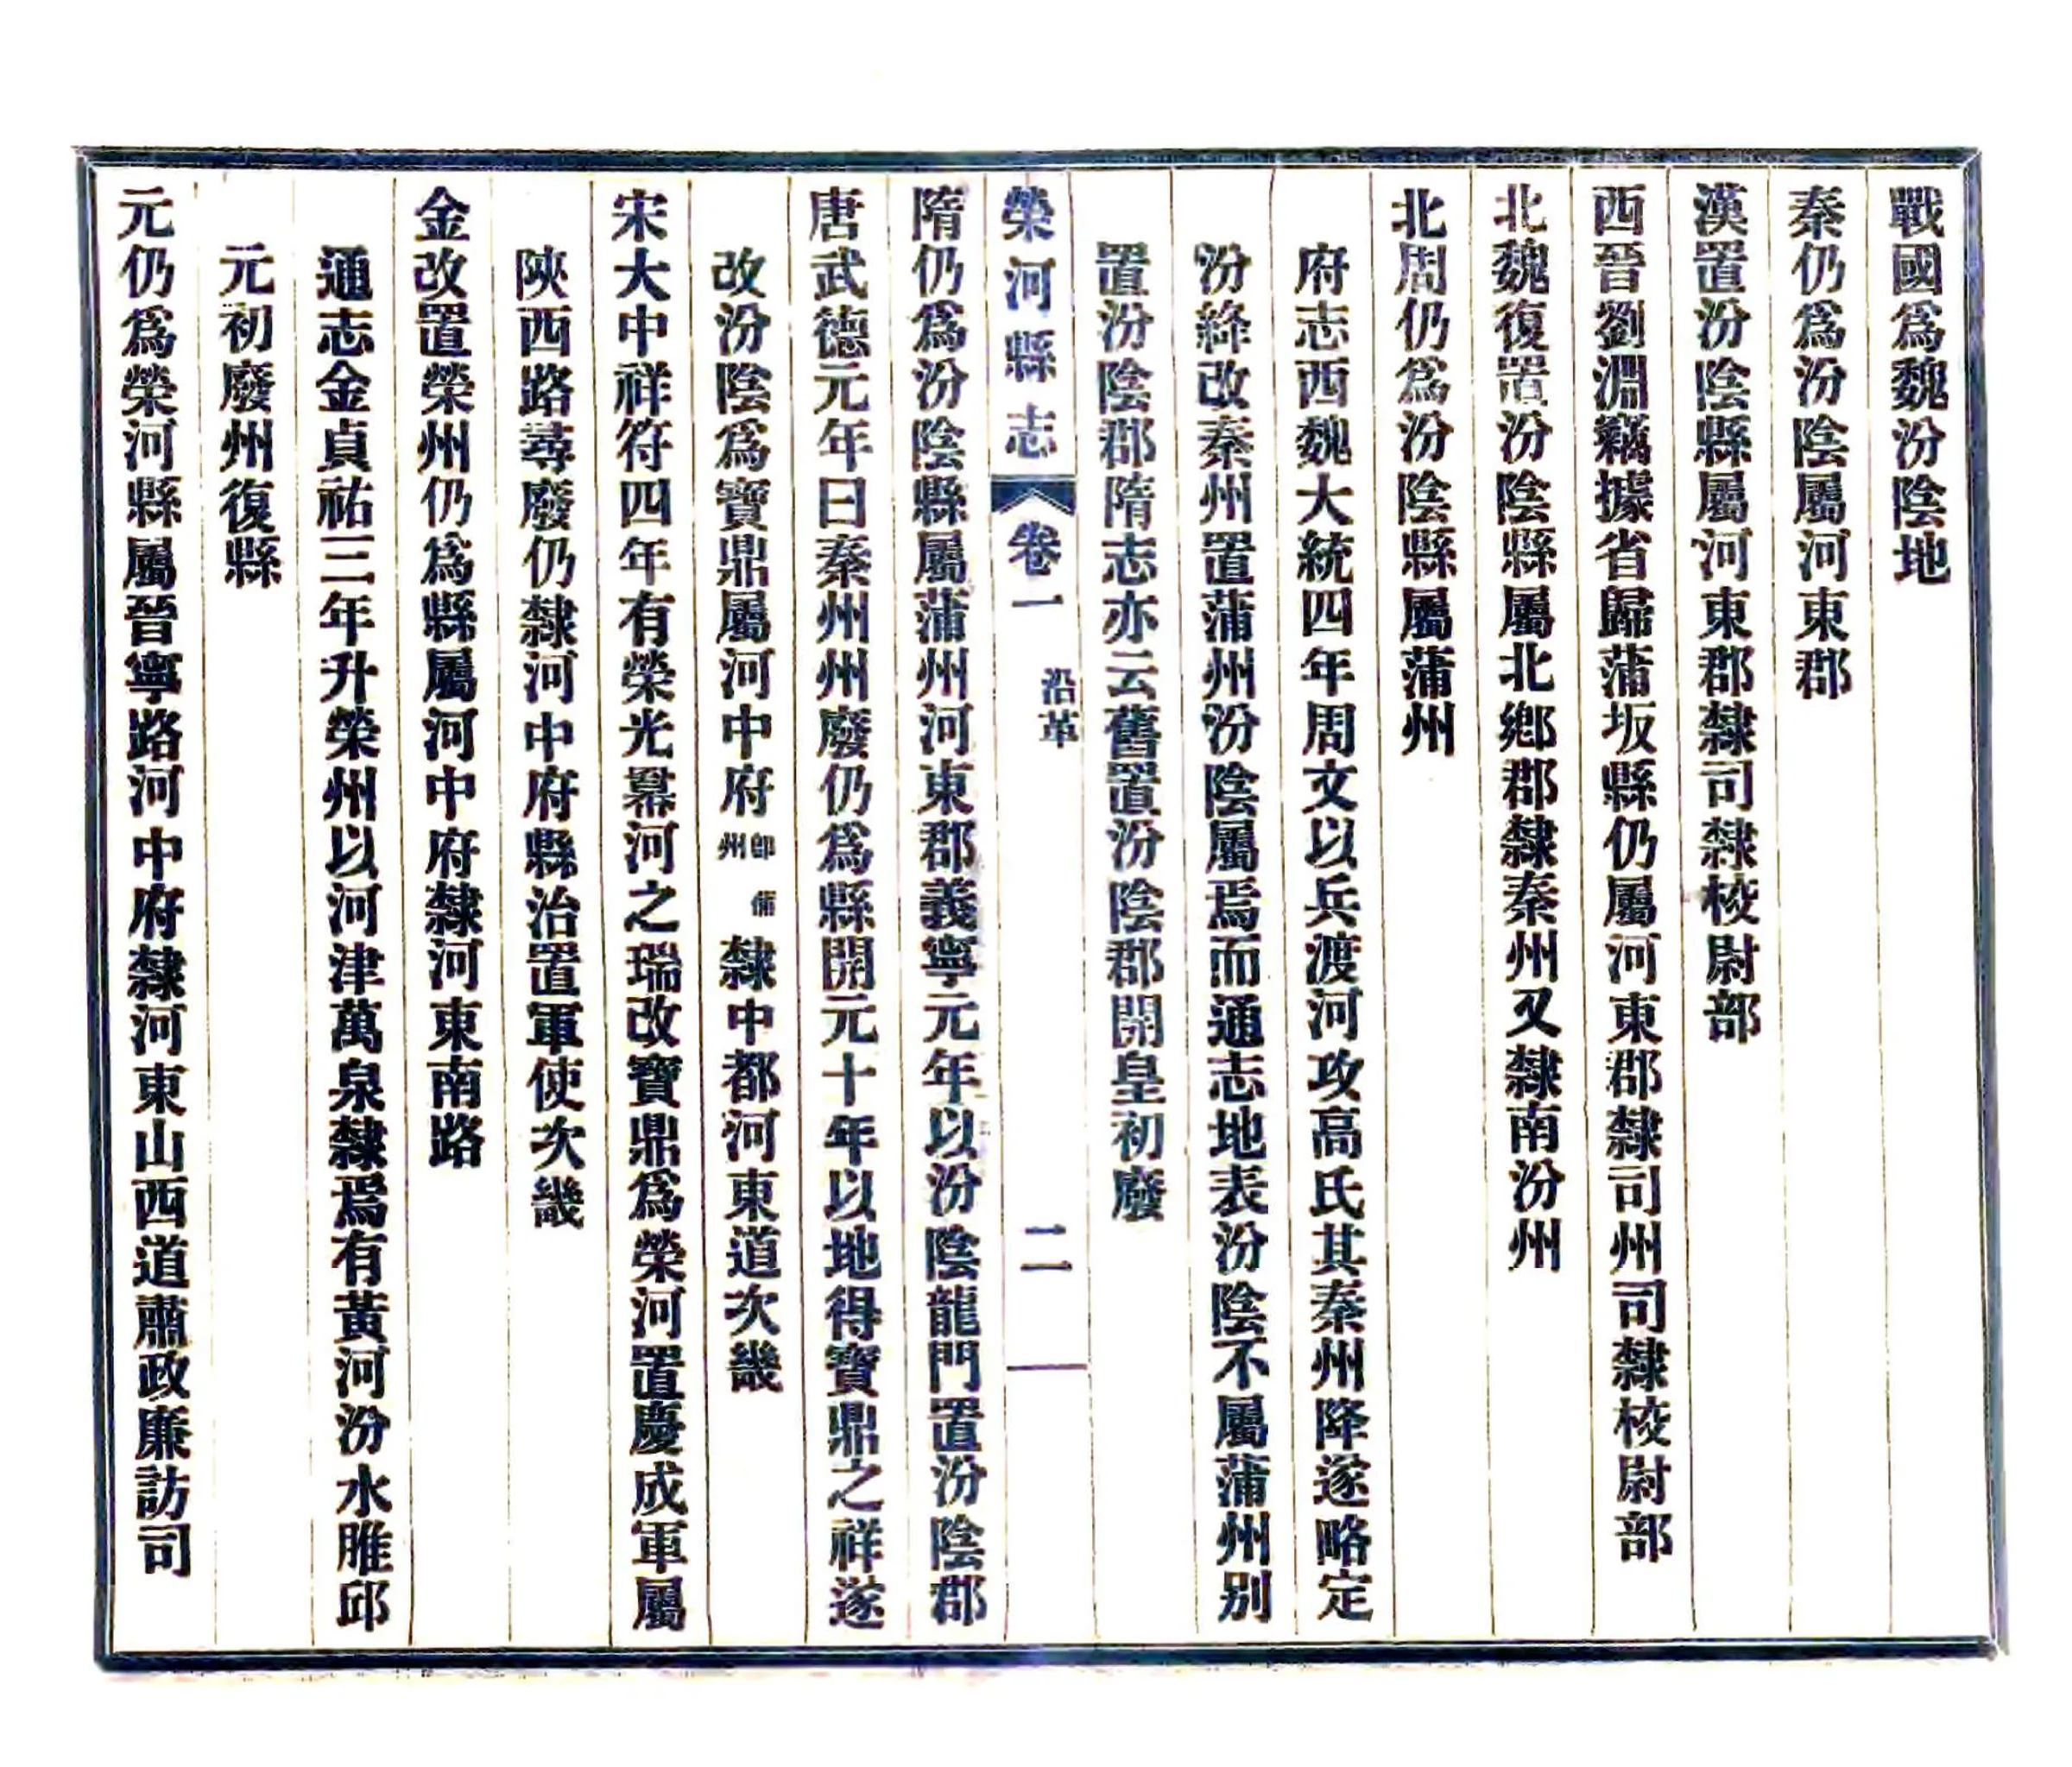 戰國爲魏汾陰地
秦仍爲汾陰屬河東郡
漢置汾陰縣屬河東郡隸司隸校尉部
西晉劉淵竊據省歸蒲坂縣仍屬河東郡隸司州司隸校尉部
北魏復置汾陰縣屬北鄉郡隸秦州又隸南汾州
北周仍爲汾陰縣屬蒲州
府志西魏大統四年周文以兵渡河攻高氏其秦州降遂略定
汾絳改秦州置蒲州汾陰屬焉而通志地表汾陰不屬蒲州別
置汾陰郡隋志亦云舊置汾陰郡開皇初廢
榮河縣志 卷一 沿革 二
隋仍爲汾陰縣屬蒲州河東郡義寧元年以汾陰龍門置汾陰郡
唐武德元年曰秦州州廢仍爲縣開元十年以地得寶鼎之祥遂
改汾陰爲寶鼎屬河中府卽蒲州隸中都河東道次畿
宋大中祥符四年有榮光冪河之瑞改寶鼎爲榮河置慶成軍屬
陝西路尋廢仍隸河中府縣治置軍使次畿
金改置榮州仍爲縣屬河中府隸河東南路
通志金貞祐三年升榮州以河津萬泉隸焉有黃河汾水脽邱
元初廢州復縣
元仍爲榮河縣屬晉寧路河中府隸河東山西道肅政廉訪司